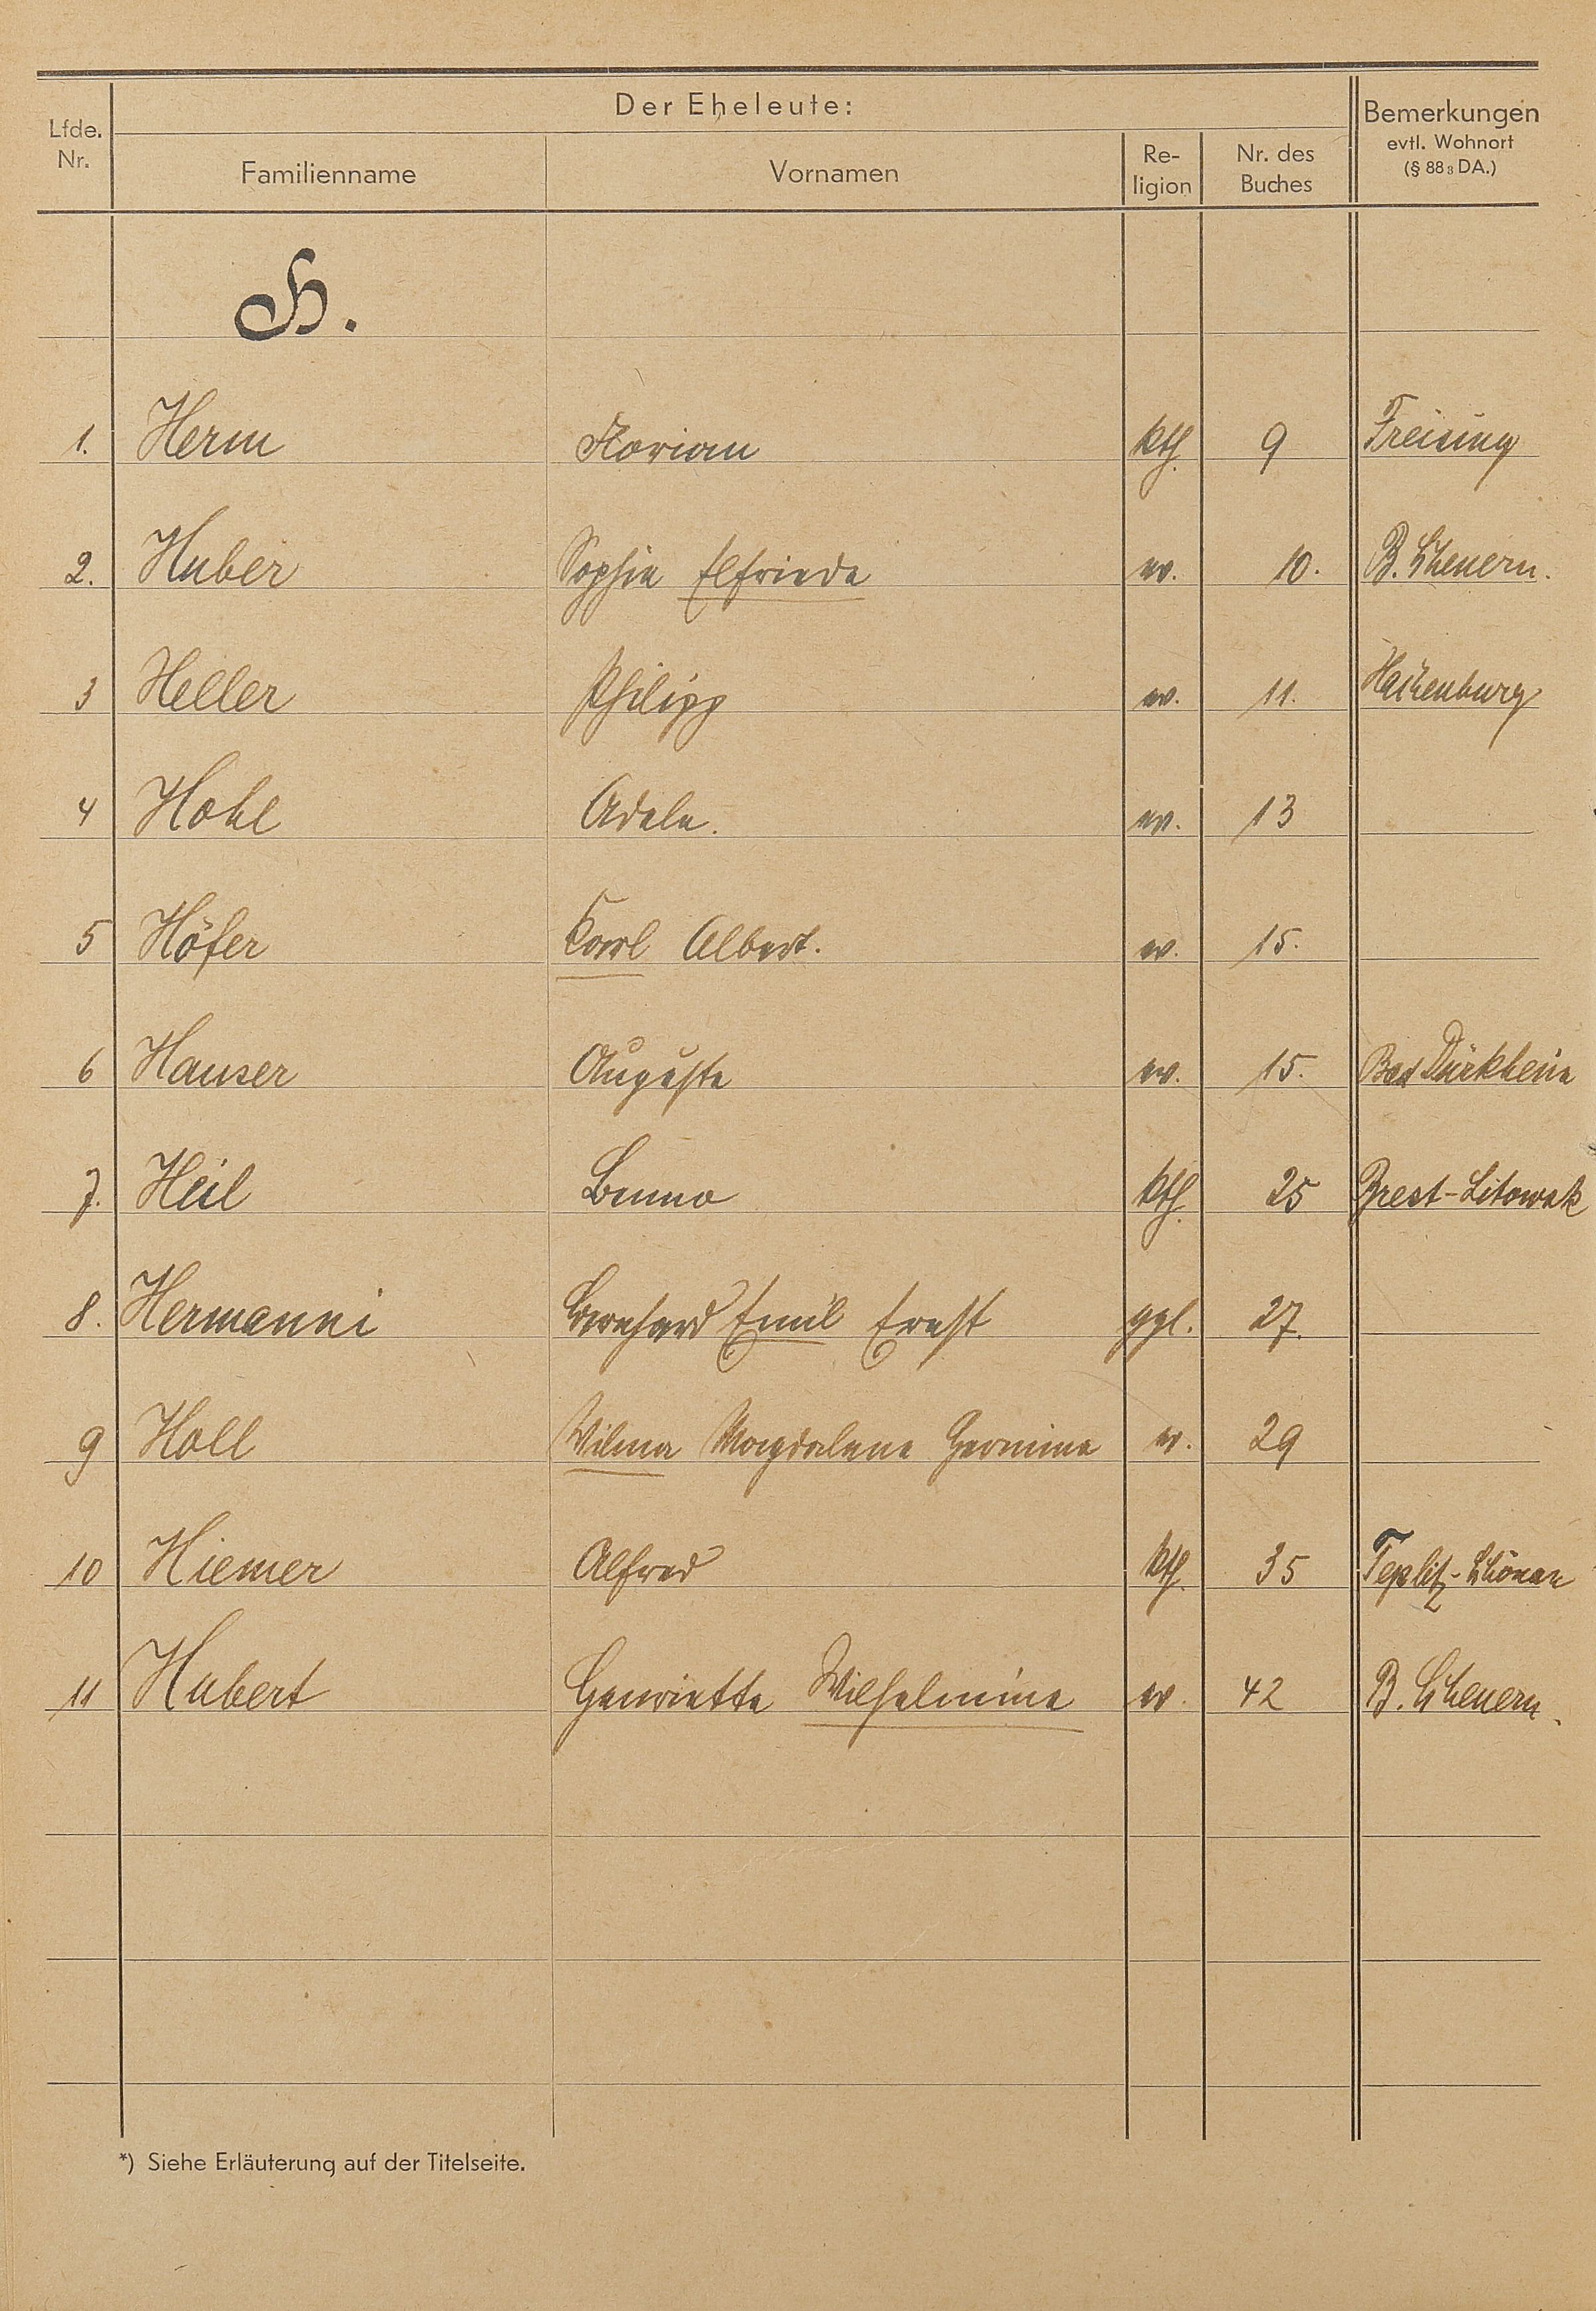 Der Eheleute:
Lfde. Nr. Familienname Vornamen Re-ligion Nr. des Buches Bemerkungen evtl. Wohnort (§ 88 3 DA.)
H.
1. Herm Florian kth. 9 Freising
2. Huber Sophie Elfriede ev. 10. B. Scheuern.
3 Heller Philipp ev. 11. Hachenburg
4 Hohl Adele. ev. 13
5 Höfer Karl Albert. ev. 15.
6 Hauser Auguste ev. 15. Bad Dürkheim
7. Heil Benno kth. 25 Brest-Litowsk
8. Hermanni Bernhard Emil Ernst ggl. 27.
9 Holl Wilma Magdalene Hermine ev. 29
10 Hiemer Alfred kth. 35 Teplitz-Schönau
11 Hubert Henriette Wilhelmine ev. 42 B. Scheuern.
*) Siehe Erläuterung auf der Titelseite.